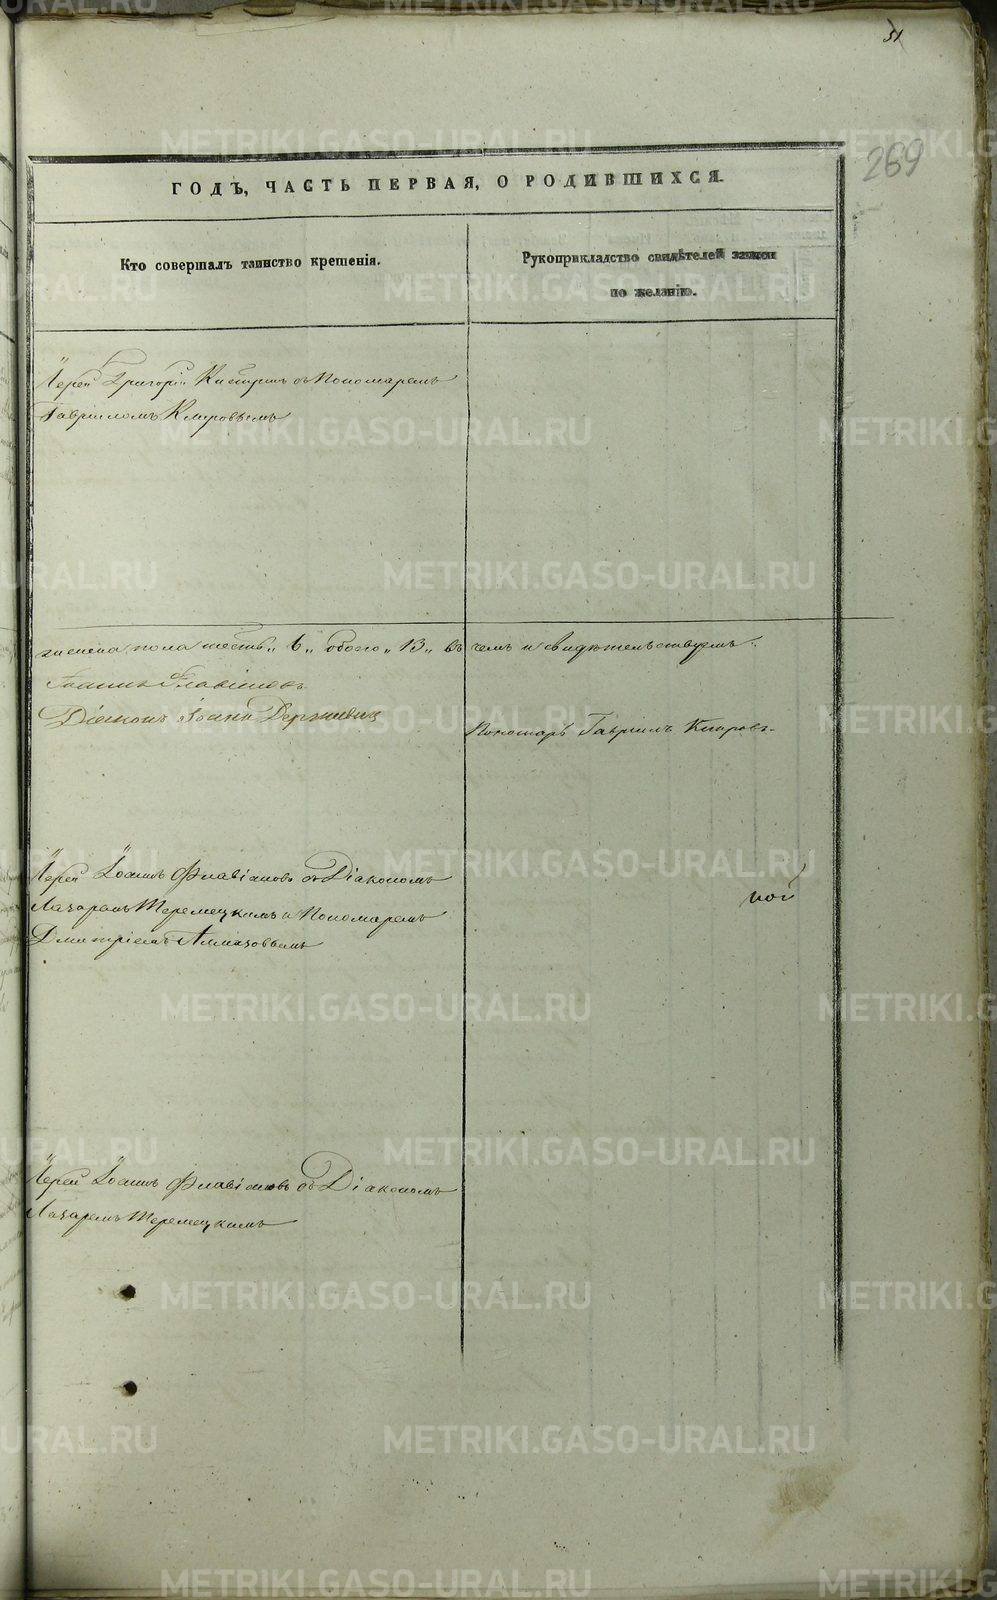 51
269
ГОДЪ, ЧАСТЬ ПЕРВАЯ, О РОДИВШИХСЯ.
Кто совершалъ таинство крещенія.
Рукоприкладство свидѣтелей записи
по желанію.
Іерей Григорій съ Пономаремъ
Гавріиломъ Кыровымъ
женска пола шесть „6„ обоего „13„ въ чемъ и свидѣтельствуемъ:
Іоаннъ Флавіановъ
Діаконъ Іоаннъ
Пономарь Гавріилъ Кыровъ
Іерей Іоаннъ Флавіановъ съ Діакономъ
Лазаремъ Теремецкимъ и Пономаремъ
Дмитріемъ Алмазовымъ
ной
Іерей Іоаннъ Флавіановъ съ Діакономъ
Лазаремъ Теремецкимъ
METRIKI.GASO-URAL.RU